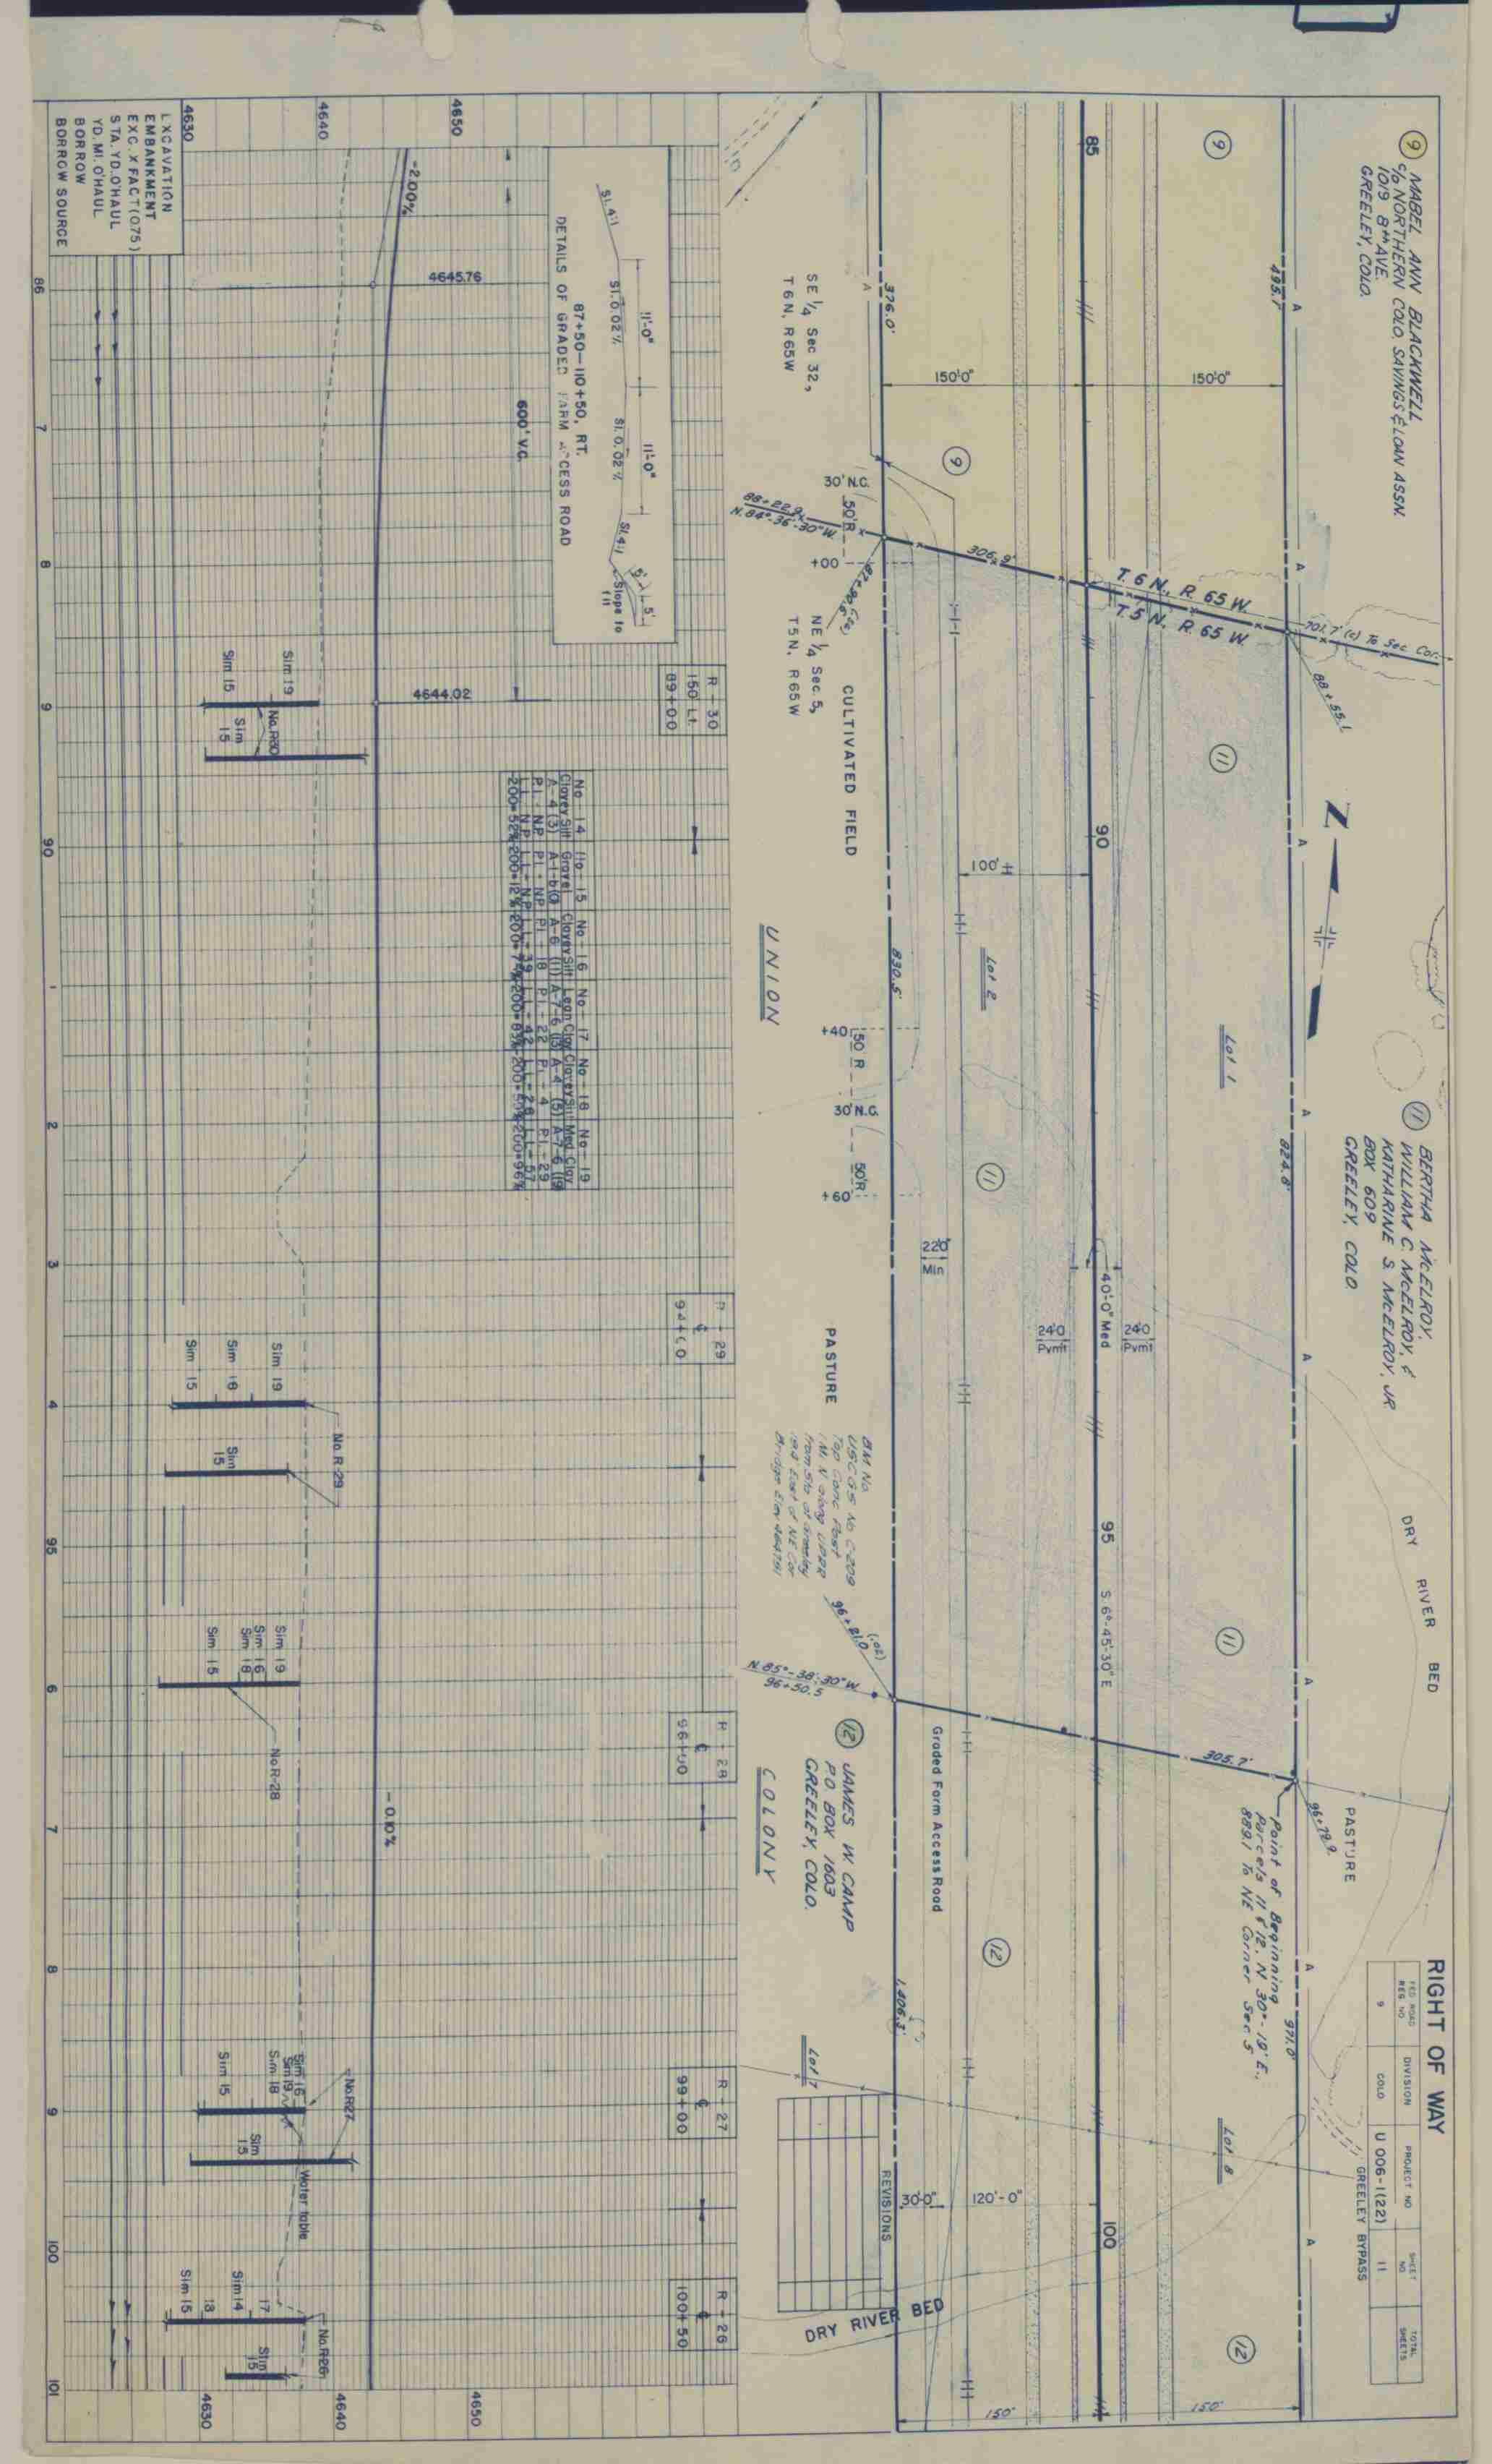 RIGHT OF WAY
FED ROAD REG NO
DIVISION
PROJECT NO
SHEET NO
TOTAL SHEETS
9
COLO
U 006-1(22)
11
GREELEY BYPASS
9 MABEL ANN BLACKWELL
c/o NORTHERN COLO. SAVINGS & LOAN ASSN.
1019 8th AVE.
GREELEY, COLO.
11 BERTHA McELROY,
WILLIAM C. McELROY, &
KATHARINE S. McELROY, JR
BOX 609
GREELEY, COLO
DRY RIVER BED
PASTURE
Z
A
A
A
A
A
A
A
A
A
495.1'
824.8'
971.0'
701.7' (c) To Sec Cor.
88+55.1
96+79.9
Point of Beginning
Parcels 11 & 12. N 30°-19' E.,
889.1 To NE Corner Sec 5
9
11
Lot 1
11
Lot 8
12
150'-0"
150'-0"
150'
150'
T. 6 N., R. 65 W.
T. 5 N., R. 65 W.
85
90
95
S 6°-45'-30" E
100
40'-0" Med
24'0 Pvmt
24'0 Pvmt
306.9'
305.7'
100' ±
Lot 2
9
11
12
22'0" Min
Graded Farm Access Road
120'-0"
30'-0"
376.0'
830.5'
1,406.3'
DRY RIVER BED
SE 1/4 Sec 32,
T 6 N, R 65W
30' N.G.
50' R
+00
88+22.9
N. 84°-36'-30" W.
NE 1/4 Sec. 5,
T 5 N, R 65 W
CULTIVATED FIELD
UNION
+40
50 R
30' N.G.
50'R
+60
PASTURE
BM No.
USC GS No C-209
Top Conc Post
1 Mi. N along UPRR
from Sta at Greeley
96+21.0 (.02)
N. 85°-38'-30" W.
96+50.5
12 JAMES W CAMP
P.O BOX 1603
GREELEY, COLO.
COLONY
Lot 7
REVISIONS
R - 30
150' Lt.
89+00
R - 29
℄
94+00
R - 28
℄
96+00
R - 27
℄
99+00
R - 26
℄
100+50
Sl. 4:1
11'-0"
Sl. 0.02 %
11'-0"
Sl. 0.02 %
Sl. 4:1
5'
5'
Slope to fit
87+50—110+50, RT.
DETAILS OF GRADED FARM ACCESS ROAD
No - 14 No - 15 No - 16 No - 17 No - 18 No - 19
Clayey Silt Gravel Clayey Silt Lean Clay Clayey Silt Med Clay
600' V.C.
4650
4640
4630
-2.00%
4645.76
4644.02
-0.10%
4650
4640
4630
Sim 19
Sim 15
No. R30
Sim 15
Sim 19
Sim 18
Sim 15
No. R-29
Sim 15
Sim 19
Sim 16
Sim 18
Sim 15
No R-28
Sim 16
Sim 19
Sim 18
Sim 15
No. R27
Sim 15
Water table
17
Sim 14
18
Sim 15
No. R26
Sim 15
EXCAVATION
EMBANKMENT
EXC. X FACT (075)
STA. YD. O'HAUL
YD. MI. O'HAUL
BORROW
BORROW SOURCE
86
7
8
9
90
1
2
3
4
95
6
7
8
9
100
101